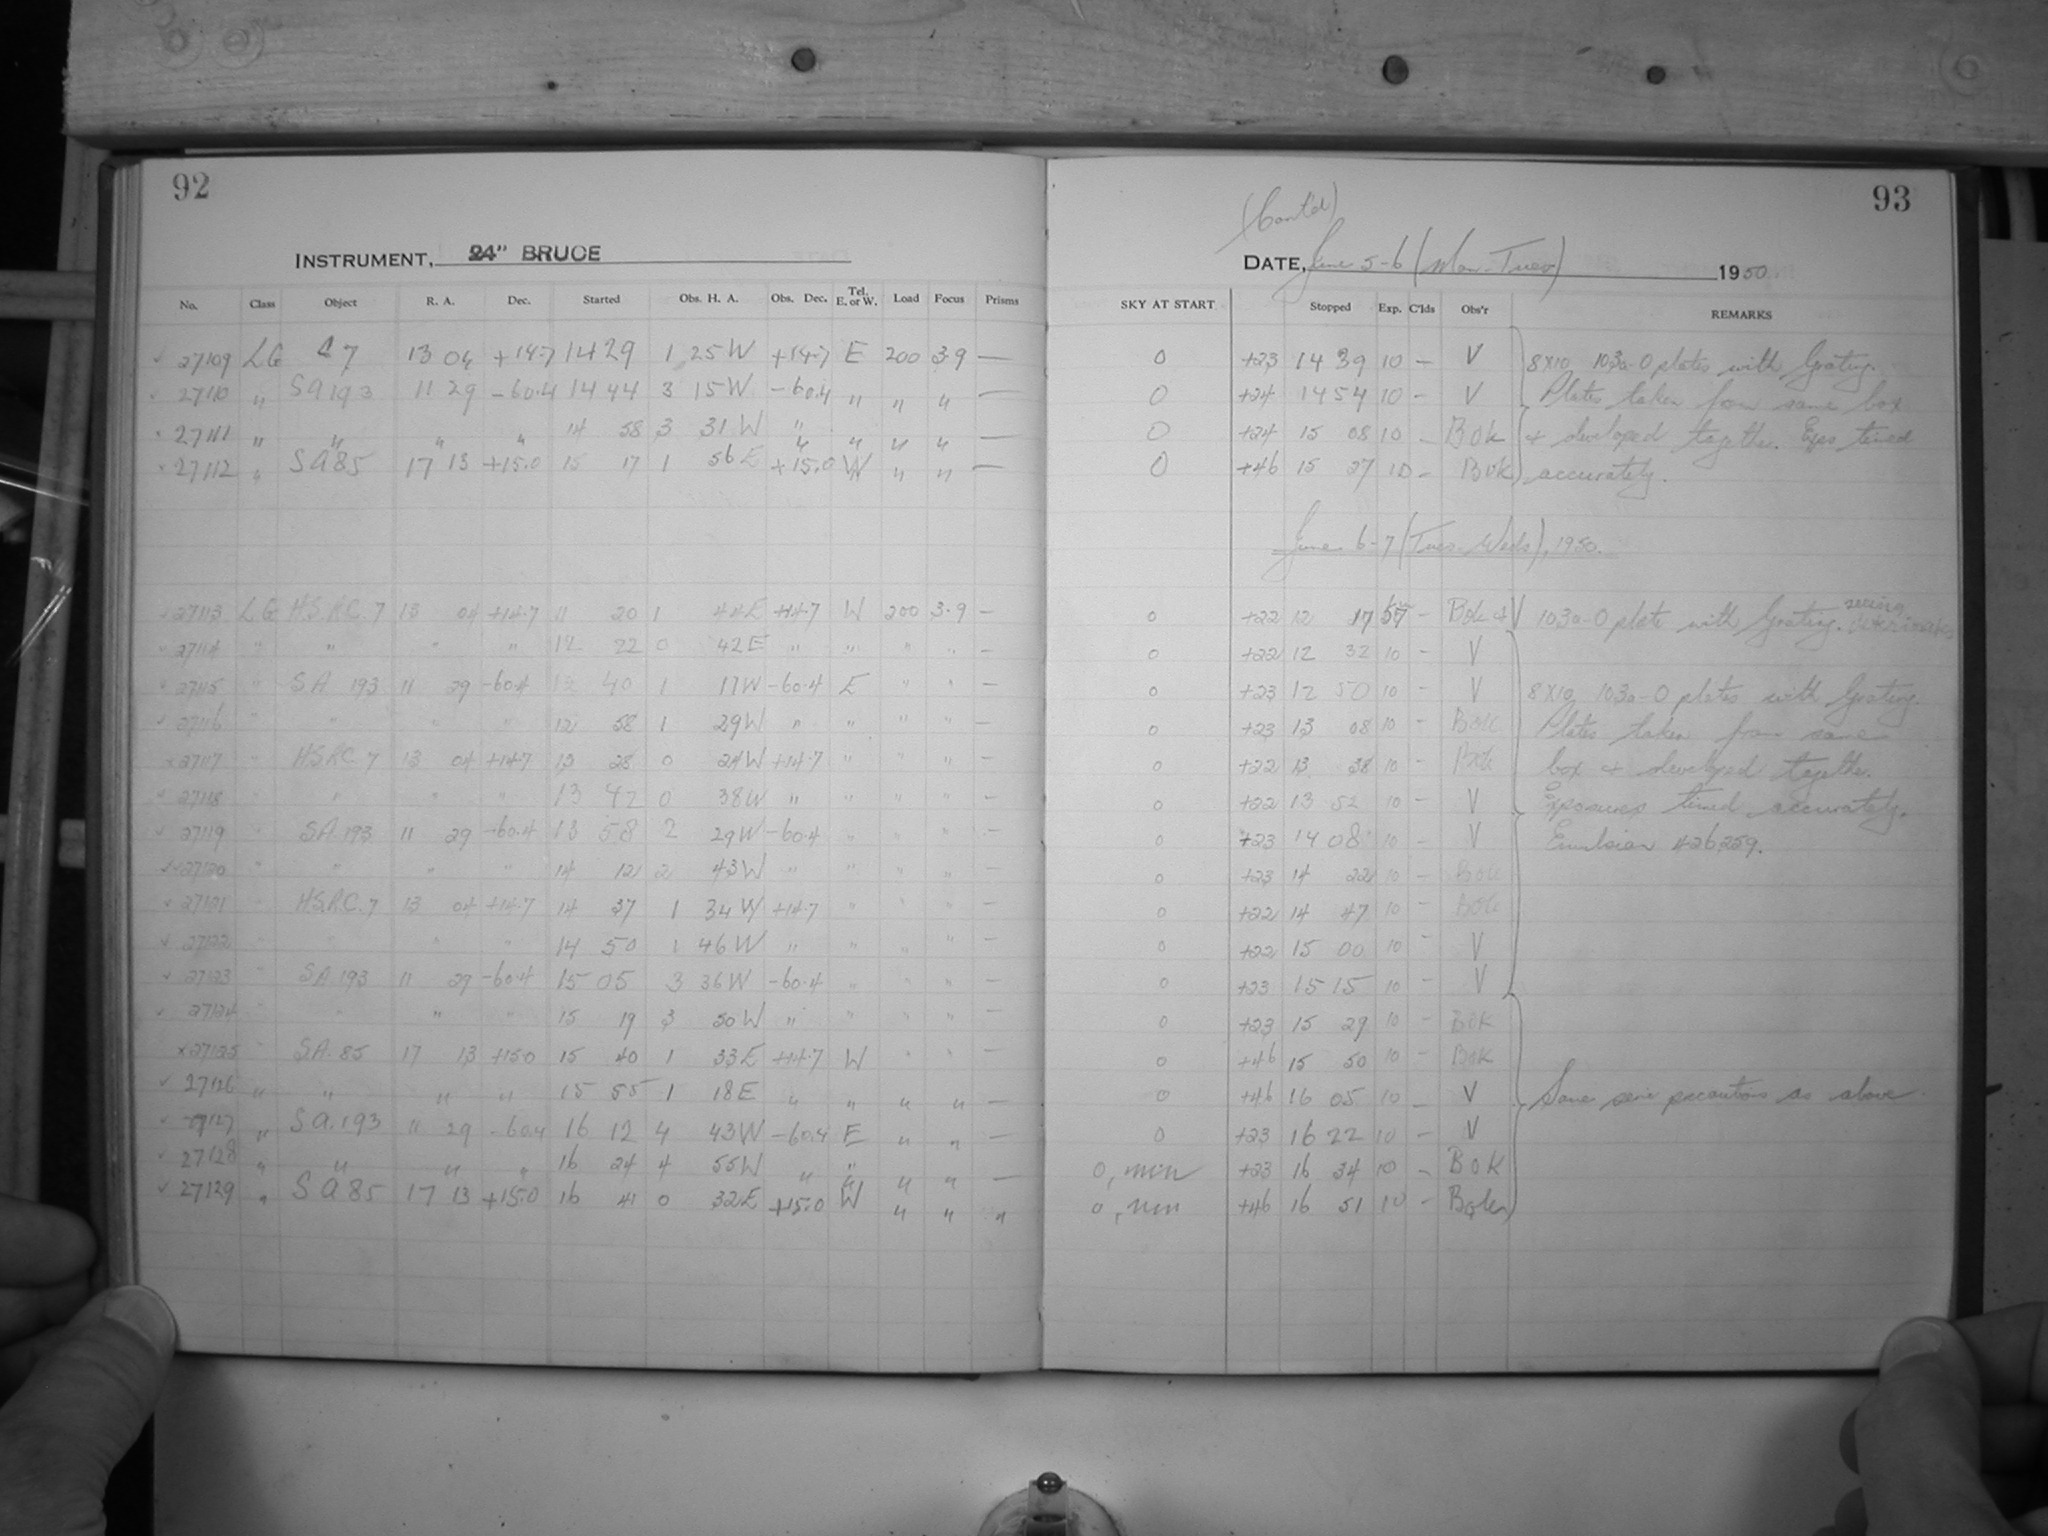 92
INSTRUMENT, 24" BRUCE
No. Class Object R. A. Dec. Started Obs. H. A. Obs. Dec. Tel. E. or W. Load Focus Prisms
27109 LG C 7 13 04 +14.7 14 29 1 25 W +14.7 E 200 3.9 —
27110 " SA 193 11 29 -60.4 14 44 3 15 W -60.4 " " " —
27111 " " " " 14 58 3 31 W " " " " —
27112 " SA 85 17 13 +15.0 15 17 1 56 E +15.0 W " " —
27113 LG H.S.R.C. 7 13 04 +14.7 11 20 1 44 E +14.7 W 200 3.9 —
27114 " " " " 12 22 0 42 E " " " " —
27115 " SA 193 11 29 -60.4 12 40 1 11 W -60.4 E " " —
27116 " " " " 12 58 1 29 W " " " " —
27117 " HSRC 7 13 04 +14.7 13 28 0 24 W +14.7 " " " —
27118 " " " " 13 42 0 38 W " " " " —
27119 " SA 193 11 29 -60.4 13 58 2 29 W -60.4 " " " —
27120 " " " " 14 12 2 43 W " " " " —
27121 " HSRC. 7 13 04 +14.7 14 37 1 34 W +14.7 " " " —
27122 " " " " 14 50 1 46 W " " " " —
27123 " SA 193 11 29 -60.4 15 05 3 36 W -60.4 " " " —
27124 " " " " 15 19 3 50 W " " " " —
27125 " SA. 85 17 13 +15.0 15 40 1 33 E +14.7 W " " —
27126 " " " " 15 55 1 18 E " " " " —
27127 " SA. 193 11 29 -60.4 16 12 4 43 W -60.4 E " " —
27128 " " " " 16 24 4 55 W " " " " —
27129 " SA 85 17 13 +15.0 16 41 0 32 E +15.0 W " " "
93
(Cont'd)
DATE, June 5-6 (Mon-Tues) 1950
SKY AT START Stopped Exp. C'lds Obs'r REMARKS
0 +23 14 39 10 — V 8x10 103a-O plates with Grating.
0 +24 14 54 10 — V Plates taken from same box
0 +24 15 08 10 — Bok & developed together. Exps timed
0 +46 15 27 10 — Bok accurately.
June 6-7 (Tues-Weds), 1950.
0 +22 12 17 57 — Bok & V 103a-O plate with Grating. seeing
0 +22 12 32 10 — V
0 +23 12 50 10 — V 8x10 103a-O plates with Grating.
0 +23 13 08 10 — Bok Plates taken from same
0 +22 13 38 10 — Bok box & developed together.
0 +22 13 52 10 — V Exposures timed accurately.
0 +23 14 08 10 — V Emulsion 426259.
0 +23 14 22 10 — Bok
0 +22 14 47 10 — Bok
0 +22 15 00 10 — V
0 +23 15 15 10 — V
0 +23 15 29 10 — Bok
0 +46 15 50 10 — Bok
0 +46 16 05 10 — V Same precautions as above.
0 +23 16 22 10 — V
0, min +23 16 34 10 — Bok
0, min +46 16 51 10 — Bok